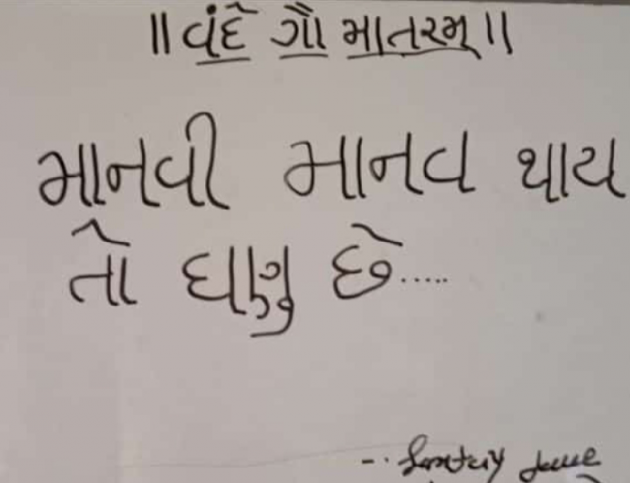 ॥ વંદે ગૌ માતરમ્ ॥
માનવી માનવ થાય
તો ઘણુ છે.....